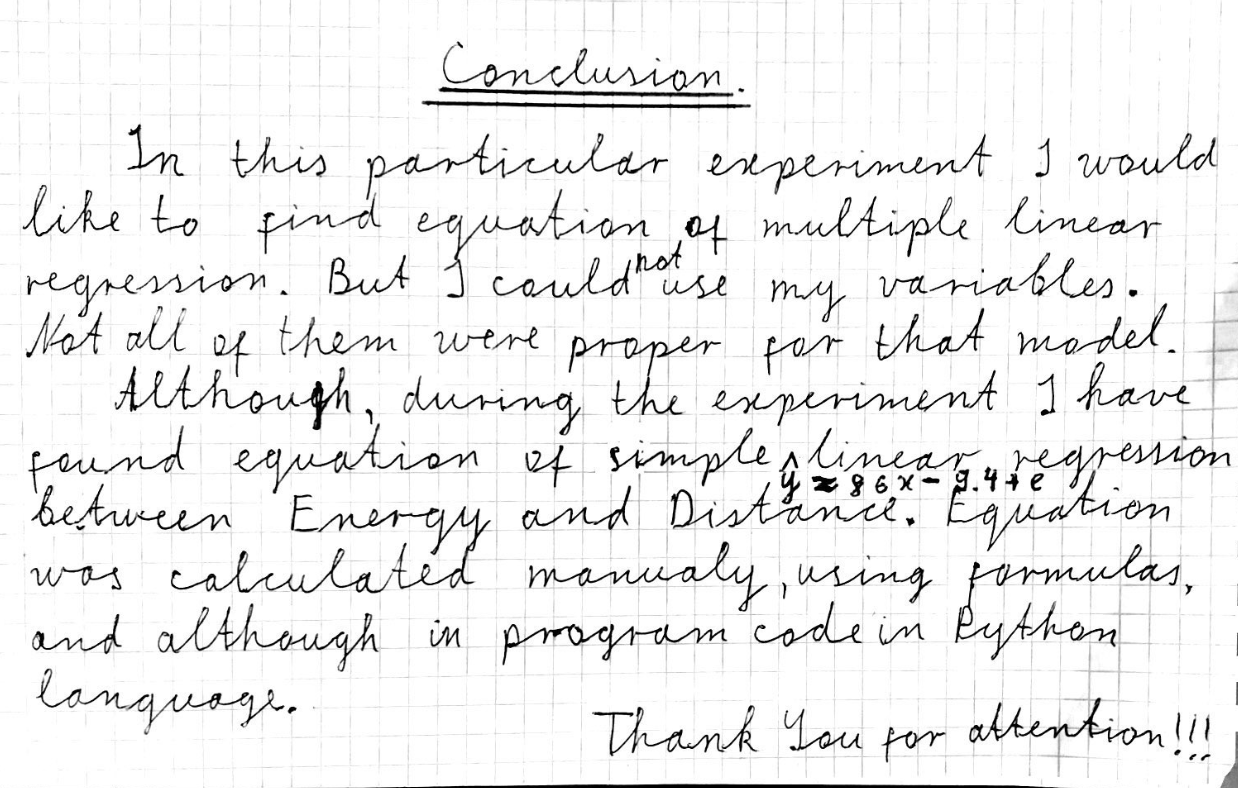 Conclusion.
In this particular experiment I would
like to find equation of multiple linear
regression. But I could not use my variables.
Not all of them were proper for that model.
Although, during the experiment I have
found equation of simple linear regression
y = 86x - 9.4 + e
between Energy and Distance. Equation
was calculated manualy, using formulas,
and although in program code in Python
language.
Thank You for attention!!!